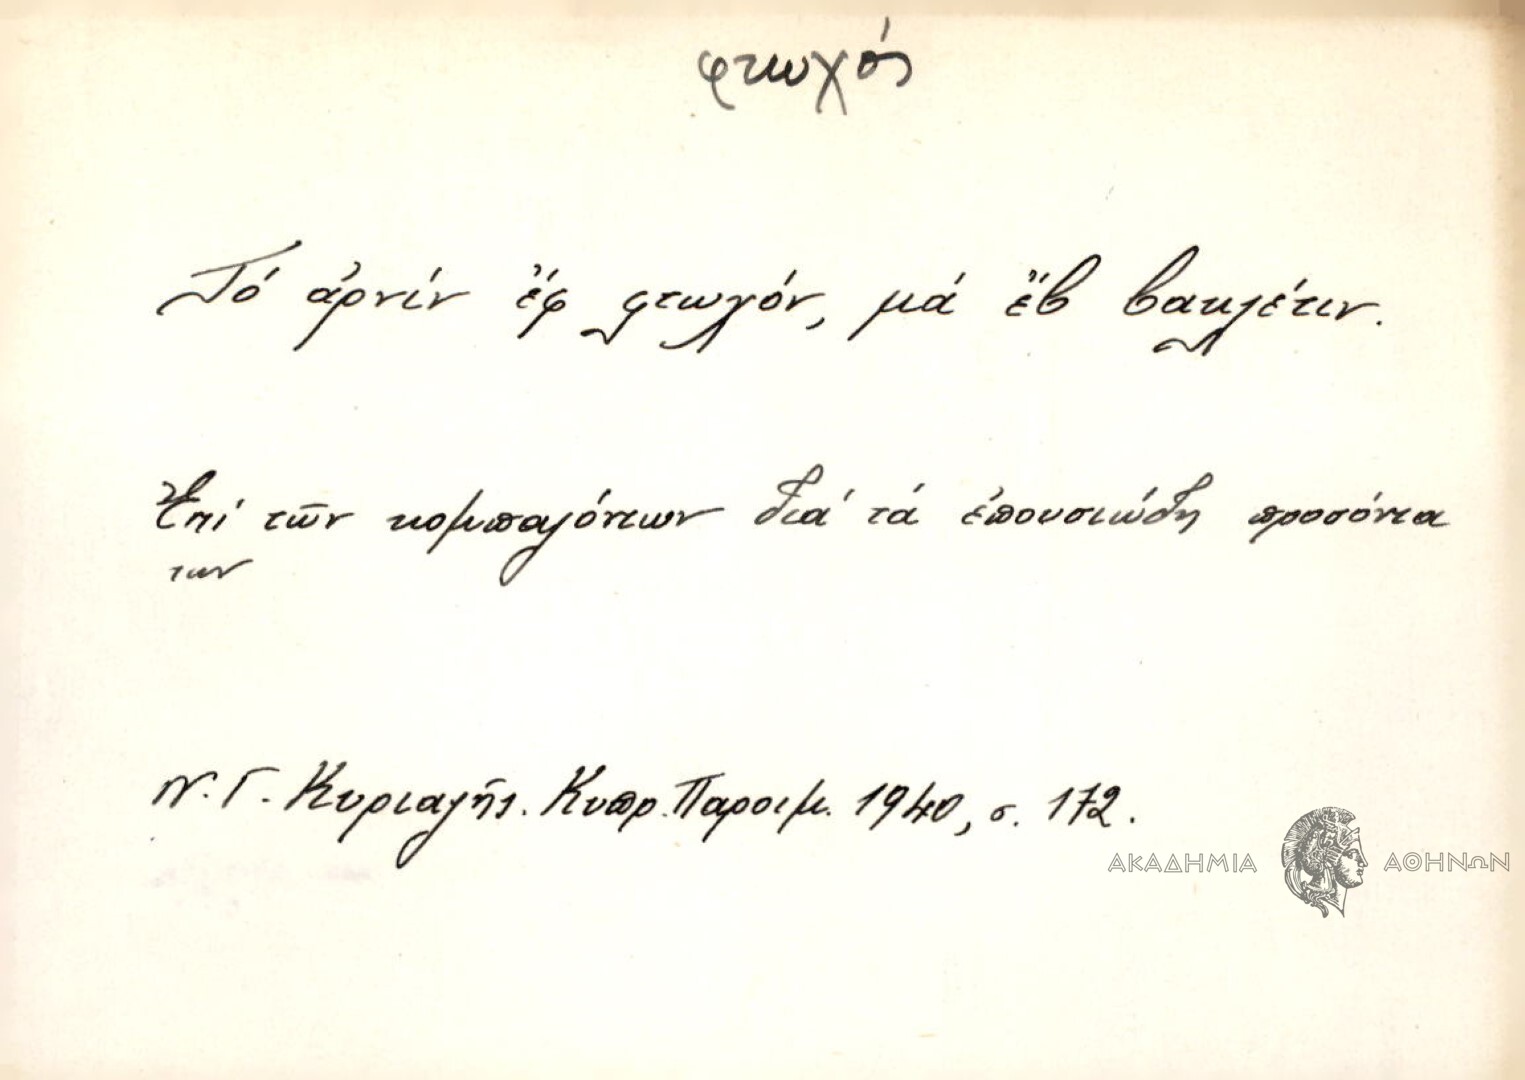 φτωχός
Τό ἀρνίν ἔφ φτωχόν, μά ἔβ βακλέτιν.
Ἐπί τῶν κομπαζόντων διά τά ἐπουσιώδη προσόντα
των
Ν. Γ. Κυριαζῆς. Κυπρ. Παροιμ. 1940, σ. 172.
ΑΚΑΔΗΜΙΑ ΑΘΗΝΩΝ